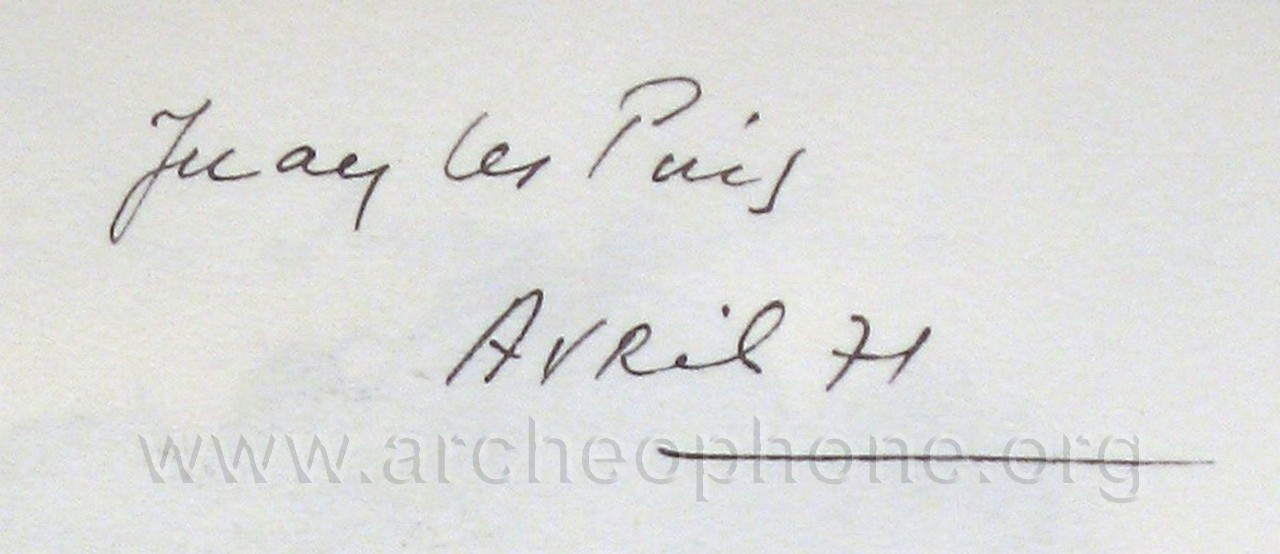 Juan les Pins
Avril 71
www.archeophone.org